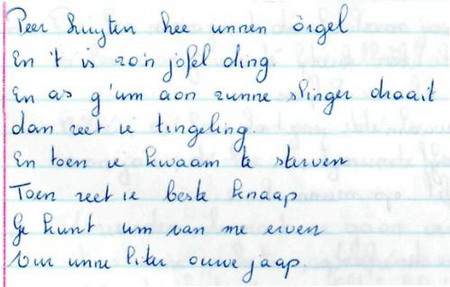 Peer kuyten hee unnen örgel
En 't is zo'n jofel ding.
En as g'um aon zunne slinger draait
dan zeet ie tingeling.
En toen ie kwaam te sterven
Toen zeet ie beste knaap
Ge kunt um van me erven
Vur unne liter ouwe jaap.